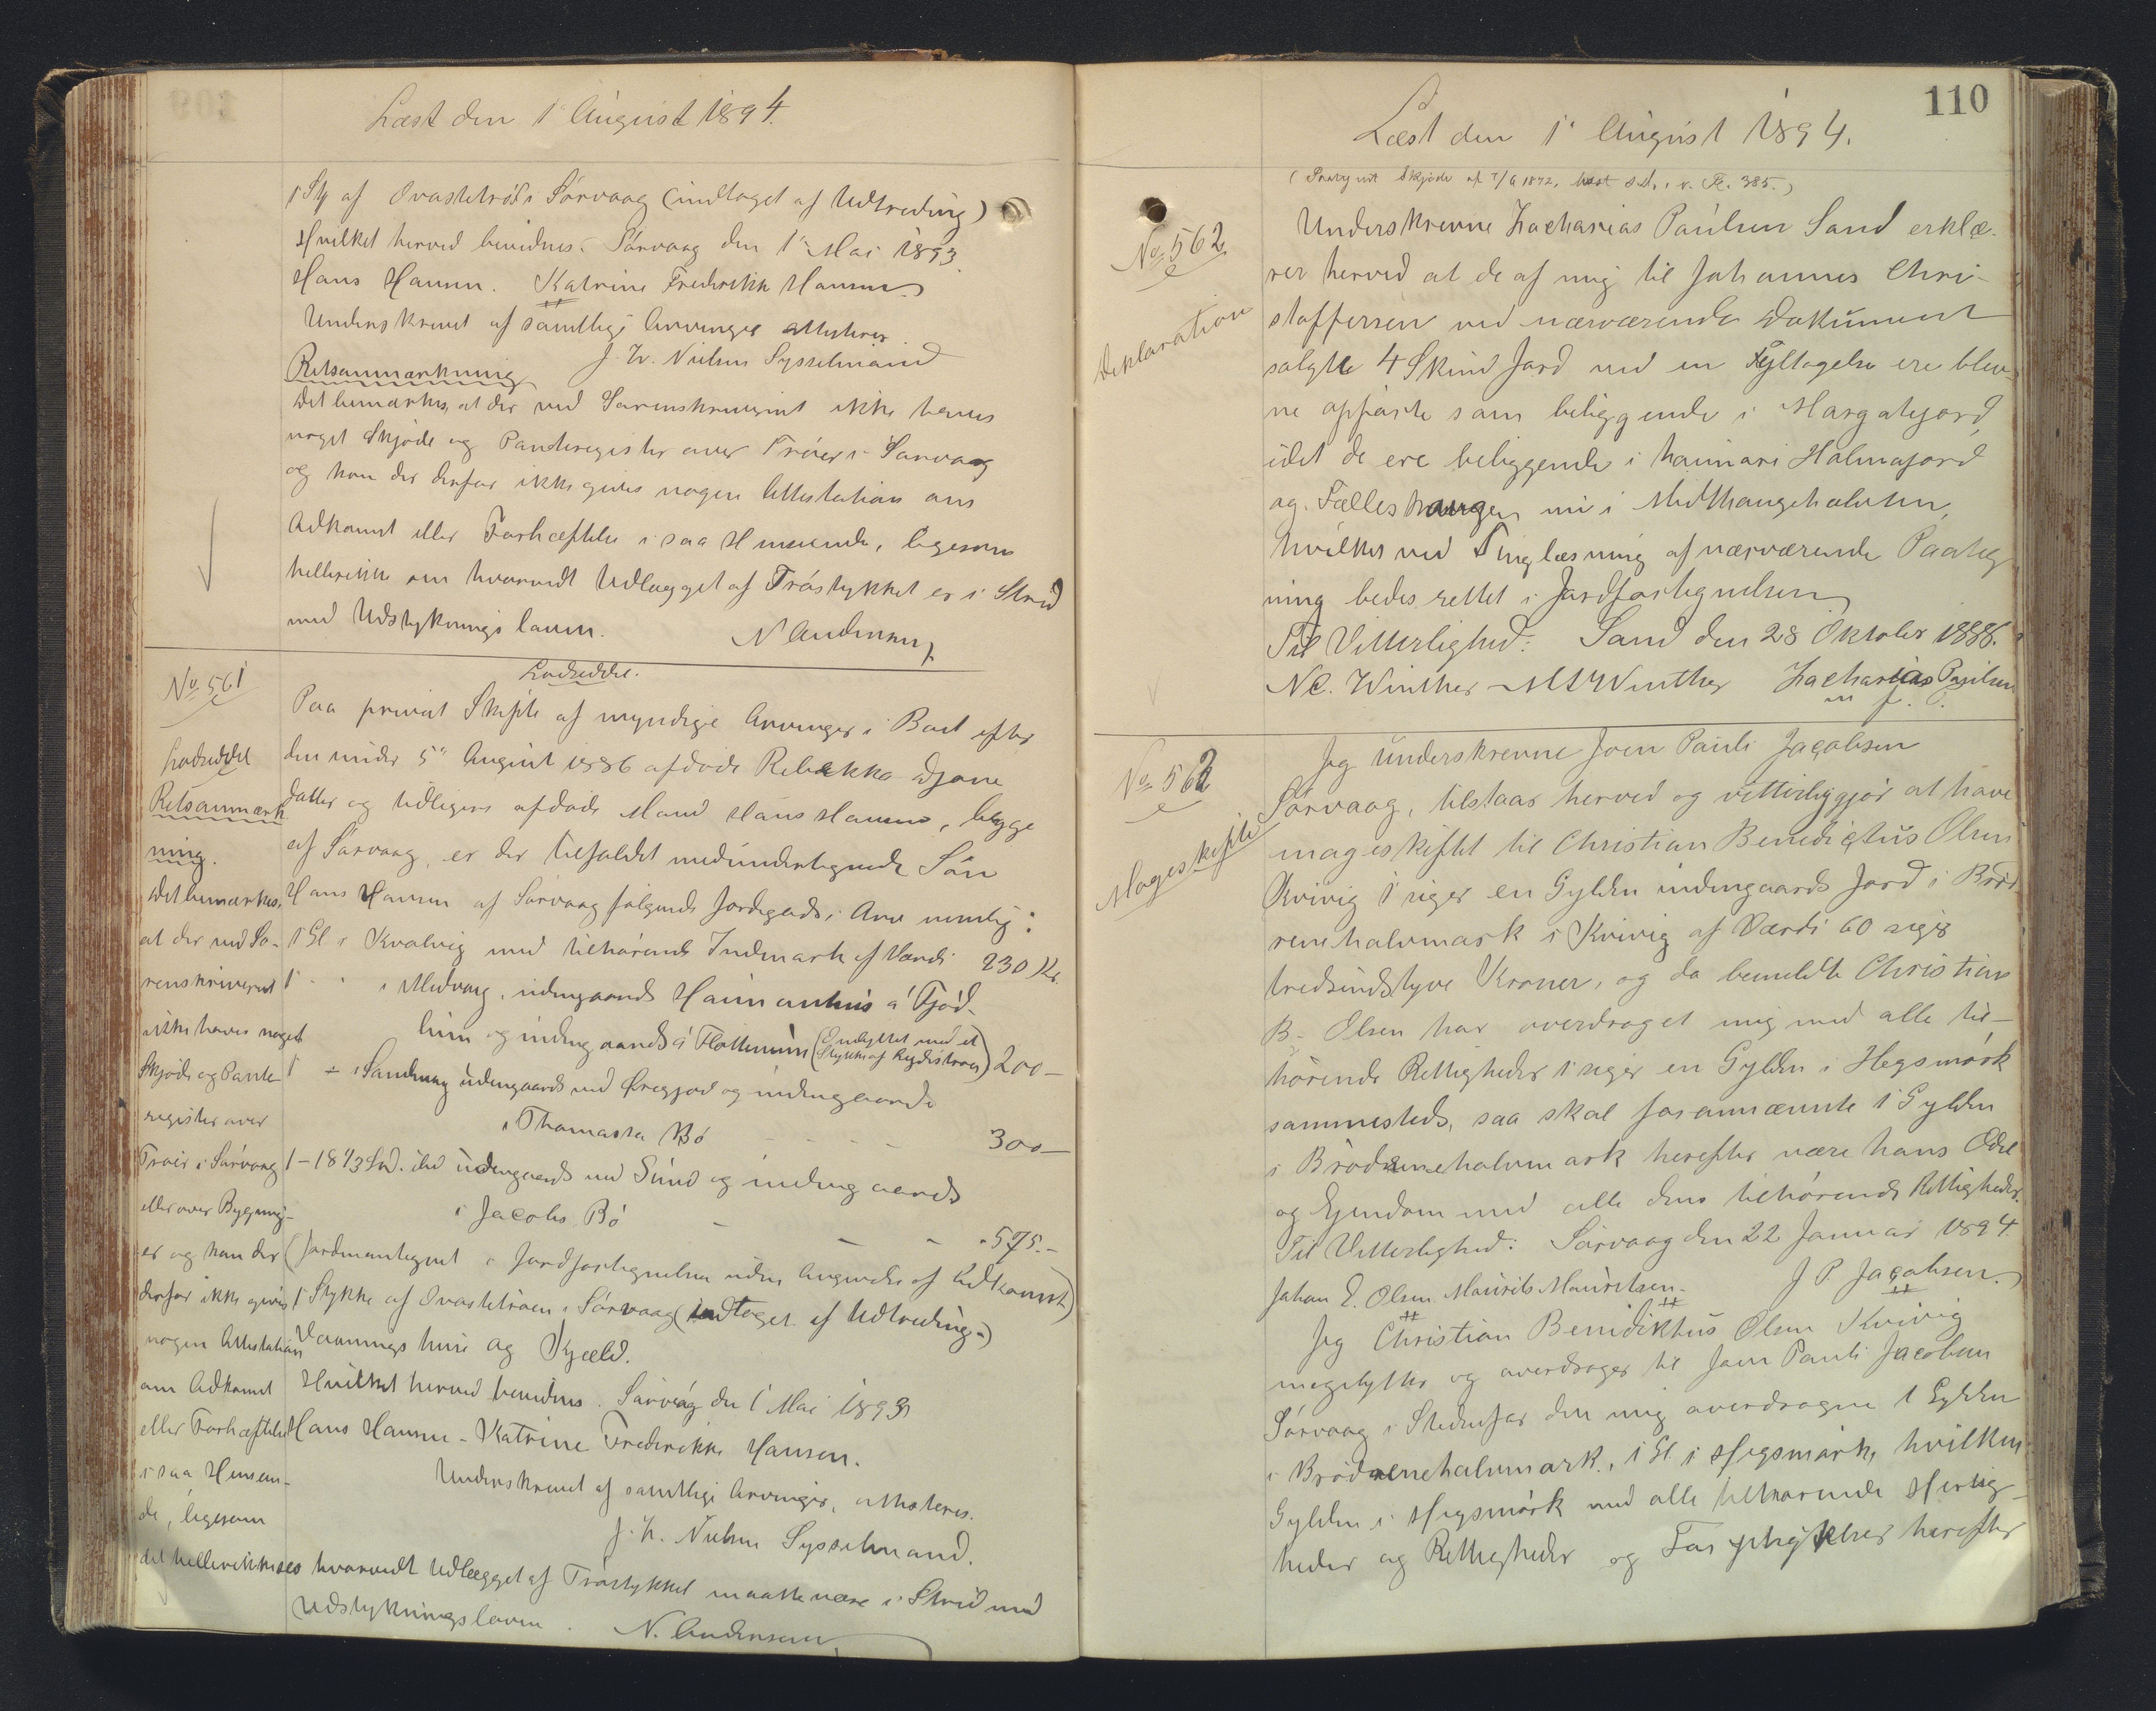 Læst den 1' August 1894.
1 Stk af Ovastetröd i Sörvaag (indtaget af Udtreding)
Hvilket herved bevidnes. Sörvaag den 1' Mai 1893.
Hans Hansen. Katrine Frederikke Hansen.
Underskrevet af samtlige Arvinger attesteres
J. H. Nielsen Sysselmand
Retsanmærkning
Det bemærkes, at der ved Sorenskriveriet ikke haves
noget Skjöde og Panteregister over Tröer i Sörvaag
og kan der derfor ikke gives nogen Attestation om
Adkomst eller Forhæftelse i saa Henseende, ligesom
hellerikke om hvorvidt Udlægget af Tröstykket er i Strid
med Udstykningsloven. N Andersen
No. 561
Lodseddel
Retsanmærk
ning.
Det bemærkes,
at der ved So-
renskriveriet
ikke haves noget
Skjöde og Pante-
register over
Tröer i Sörvaag
eller over Bygning-
er og kan der
derfor ikke gives
nogen Attestation
om Adkomst
eller Forhæftelse
i saa Henseen-
de, ligesom
Lodseddel.
Paa privat Skifte af myndige Arvinger i Boet efter
den under 5" August 1886 afdöde Rebekka Djone
datter og tidligere afdöde Mand Hans Hansen, begge
af Sörvaag, er der tilfaldet medundertegnede Sön
Hans Hansen af Sörvaag fölgende Jordegods i Arv nemlig:
1 Gl i Kvalvig med tilhörende Indmark af Værdi 230 Kr.
1 " i Midvaag, udengaards Haimanhus á Fjöd-
lum og indengaards á Flottinum (Ombyttet med et Stykke af Rydistroer) 200 -
1 " i Sandvaag udengaards ved Öregjord og indengaards
i Thomassa Bö - - - - 300 -
1 - 18 1/3 Lod. ibd udengaards ved Sund og indengaards
i Jacobs Bö - - - 575.-
(Jordmantegnet i Jordfortegnelsen uden Angivelse af Adkomst)
1 Stykke af Ovastetröen i Sörvaag (indtaget af Udtreding.)
Vaaningshuse og Kjæld.
Hvilket herved bevidnes. Sörvaag den 1' Mai 1893
Hans Hansen - Katrine Frederikke Hansen.
Underskrevet af samtlige Arvinger, attesteres.
J. H. Nielsen Sysselmand.
det hellerikke sees hvorvidt Udlægget af Tröstykket maatte være i Strid med
Udstykningsloven. N. Andersen
110
Læst den 1' August 1894.
(Paategnet Skjöde af 7/6 1872, læst s.d., v. Fol. 385.)
No. 562
Deklaration
Underskrevne Zacharias Paulsen Sand erklæ-
rer herved at de af mig til Johannes Chri-
stoffersen ved nærværende Dokument
solgte 4 Skind Jord med en Fyltagelse ere blev-
ne opförte som beliggende i Margatejord,
idet de ere beliggende i haimari Holmajord
og Fælleshaugen inn i Midthaugehalvten,
hvilket ved Tinglæsning af nærværende Paateg
ning bedes rettet i Jordfortegnelsen
Til Vitterlighed: Sand den 28 Oktober 1888.
N.C. Winther - M S Winther Zacharias Paulsen
m. f. P.
No. 563
Mageskifte
Jeg underskrevne Joen Pauli Jacobsen
Sörvaag, tilstaar herved og vitterliggjör at have
mageskiftet til Christian Benedictus Olsen
Kvivig 1 siger en Gylden indengaards Jord i Bröd-
renehalvmark i Kvivig af Værdi 60 siger
tredsindstyve Kroner, og da bemeldte Christian
B. Olsen har overdraget mig med alle til-
hörende Rettigheder 1 siger en Gylden i Hegsmörk
sammesteds, saa skal forannævnte 1 Gylden
i Brödrenehalvmark herefter være hans Odel
og Ejendom med alle dens tilhörende Rettigheder.
Til Vitterlighed: Sörvaag den 22 Januar 1894.
Johan E. Olsen Maurits Mauritsen. J P Jacobsen.
Jeg Christian Benidiktus Olsen Kvivig
magebytter og overdrager til Joen Pauli Jacobsen
Sörvaag i Stedenfor den mig overdragne 1 Gylden
i Brödrenehalvmark, 1 Gl i Hegsmörk, hvilken
Gylden i Hegsmörk med alle tilhörende Herlig-
heder og Rettigheder og Forpligtelser herefter